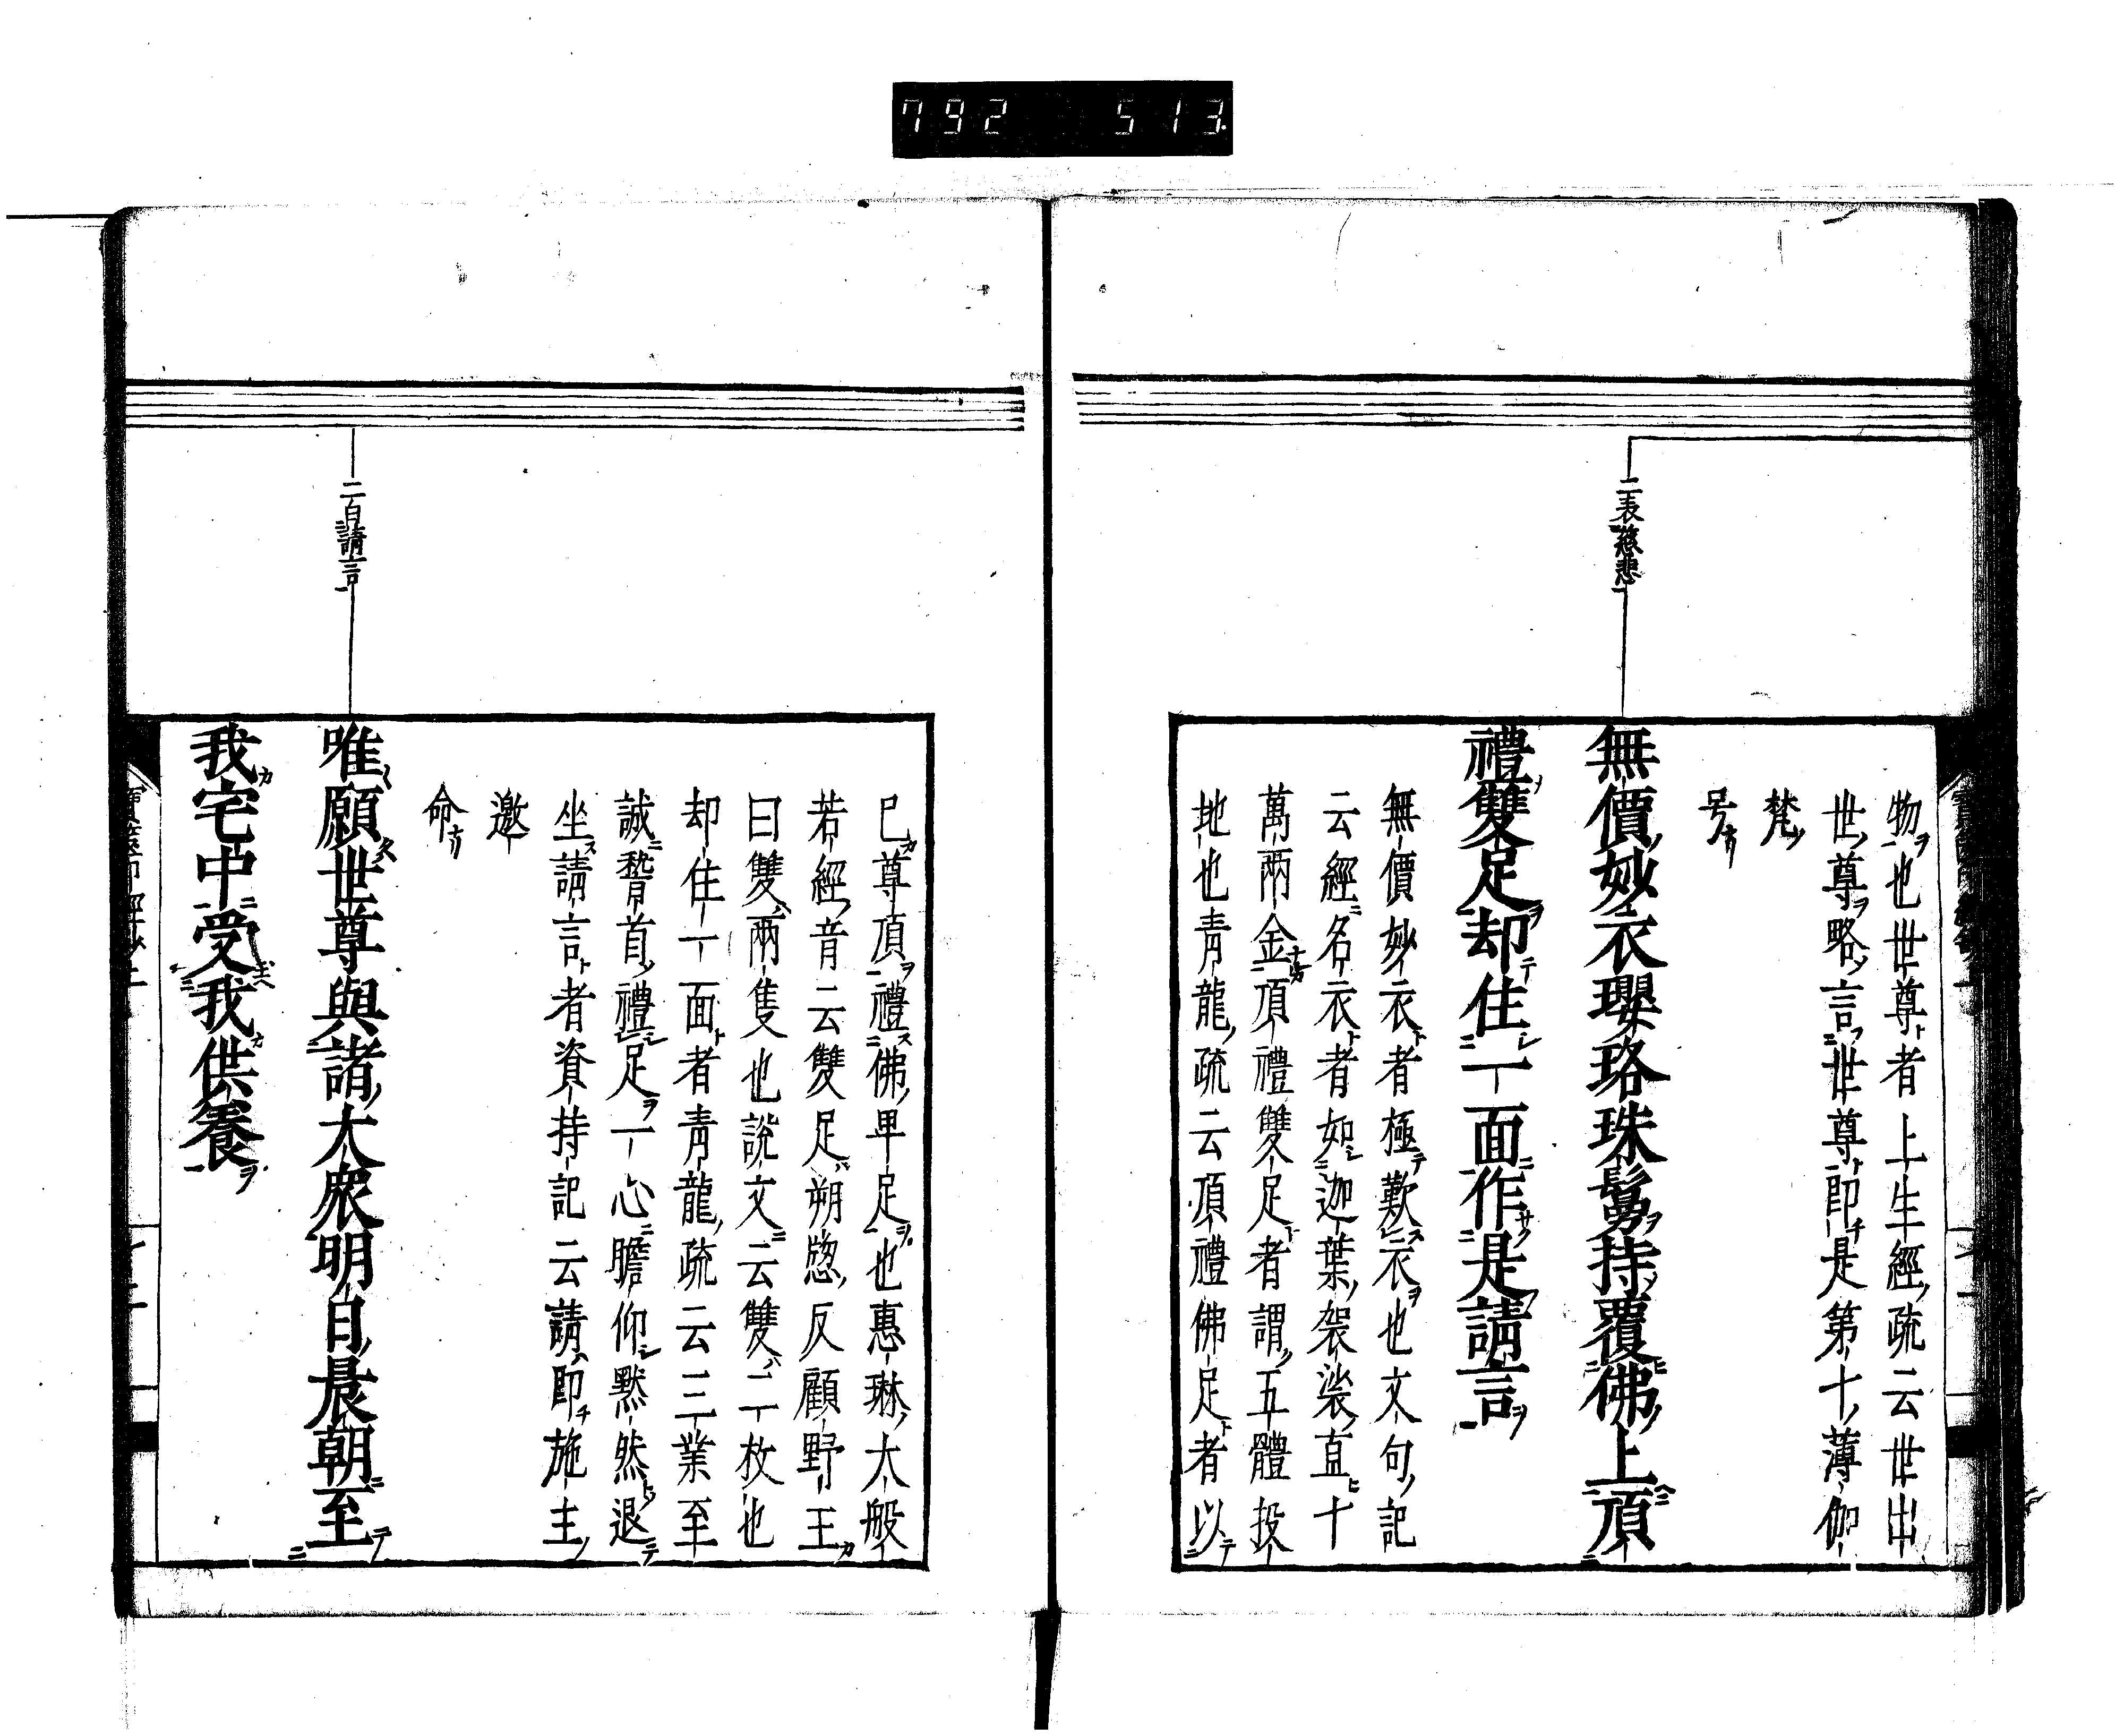 792 513
二表慈悲
物也世尊者上生經疏云世出
世尊略言世尊即是第十薄伽
梵
号
無價妙衣瓔珞珠鬘持覆佛上頂
禮雙足却住一面作是請言
無價妙衣者極歎衣也文句記
云經名衣者如迦葉袈裟直十
萬兩金頂禮雙足者謂五體投
地也青龍疏云頂禮佛足者以
已尊頂禮佛卑足也惠琳大般
若經音云雙足朔牎反顧野王
曰雙兩隻也說文云雙二枚也
却住一面者青龍疏云三業至
誠稽首禮足一心瞻仰默然退
坐請言者資持記云請即施主
邀
命
二白請言
唯願世尊與諸大衆明日晨朝至
我宅中受我供養